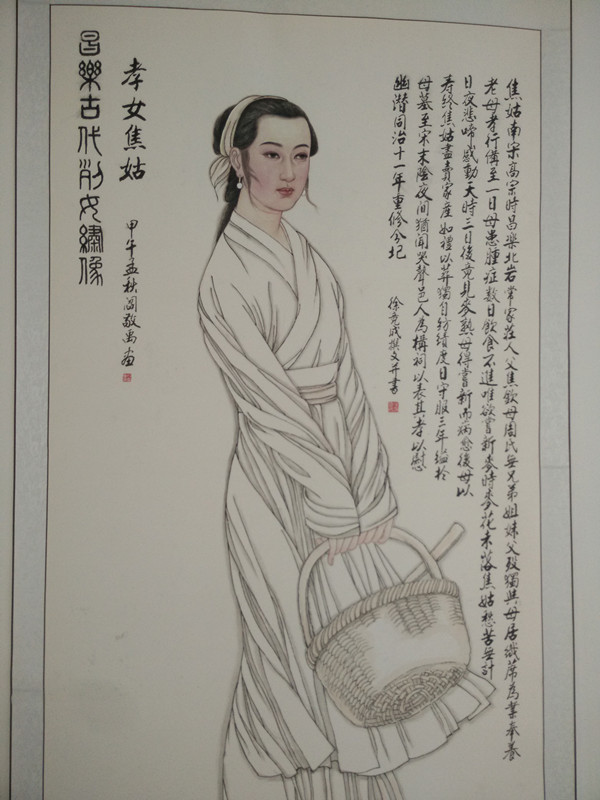 焦姑南宋高宗時昌樂北岩常家莊人父焦欽母周氏無兄弟姐妹父歿獨與母居織蓆為業奉養
老母孝行備至一日母患腫症數日飲食不進唯欲嘗新麥時麥花未落焦姑愁苦無計
日夜悲啼感動天時三日後竟見麥熟母得嘗新而病愈後母以
壽終焦姑盡賣家產如禮以葬獨自紡績度日守服三年縊於
母墓至宋末陰夜間猶聞哭聲邑人為構祠以表其孝以慰
幽潛同治十一年重修今圮
撰文并書
孝女焦姑
甲午孟秋閻敬禹畫
昌樂古代列女繡像